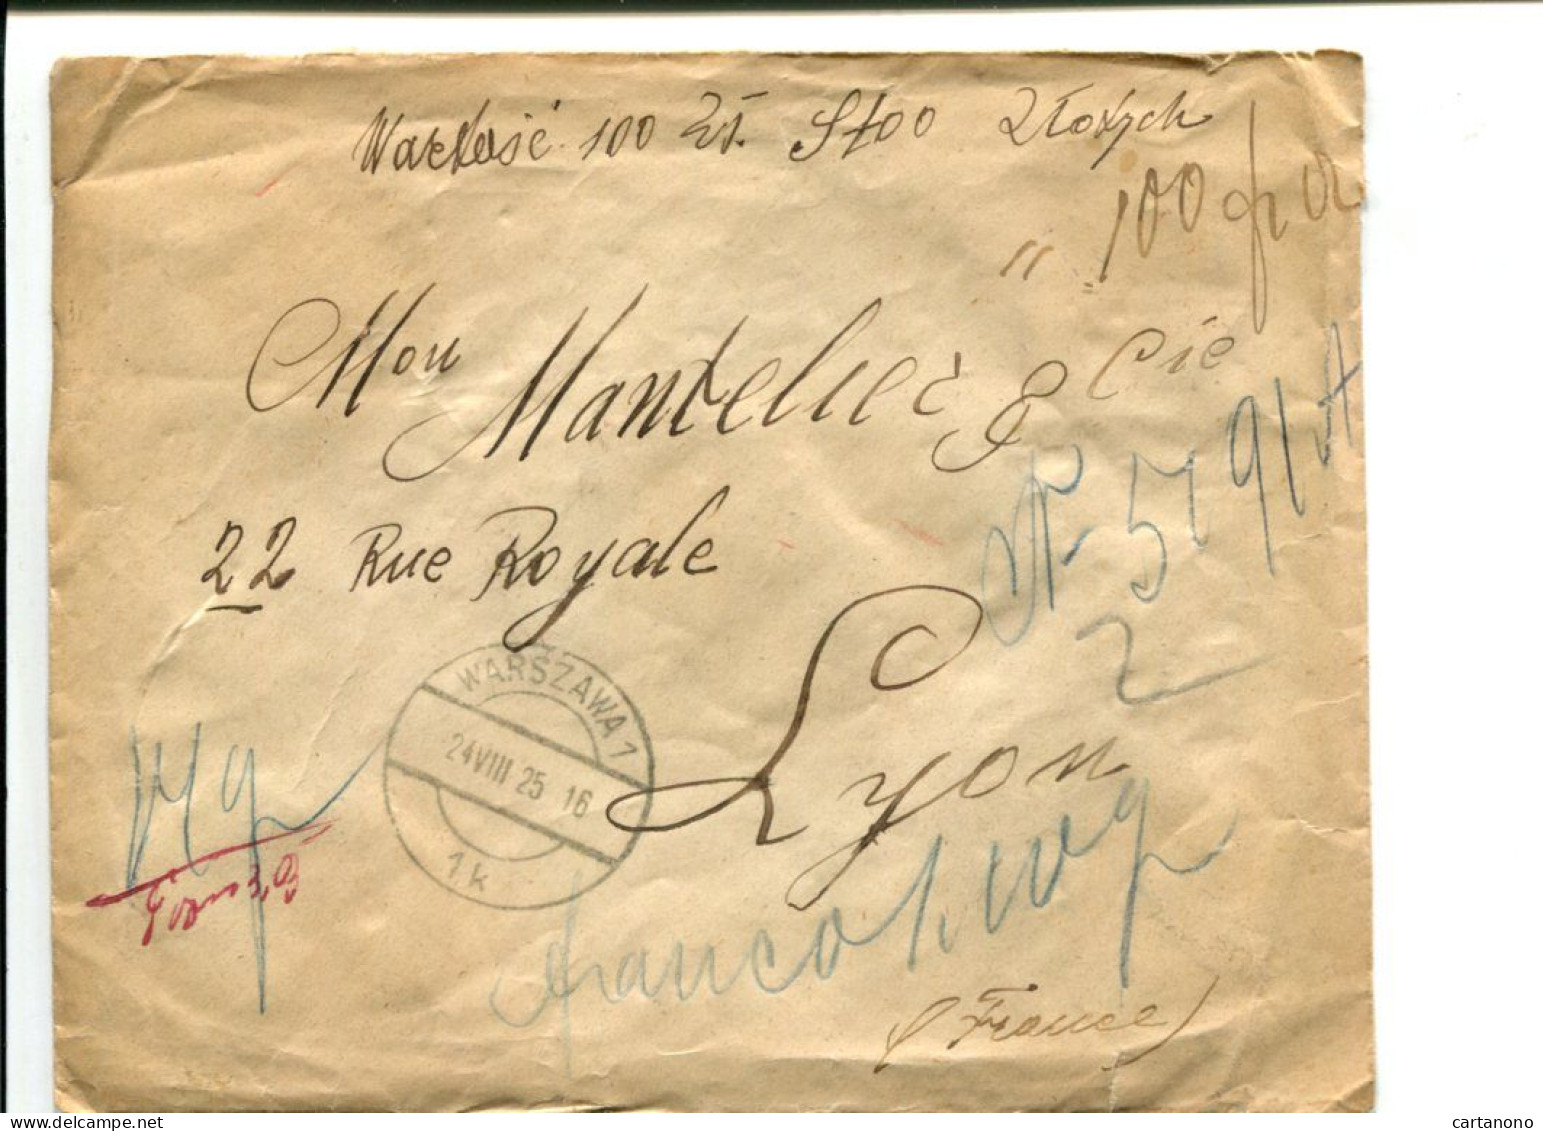 Wartość 100 Zł. Sto Złotych
" 100
Mon Mantelier & Cie
22 Rue Royale
N 
2
WARSZAWA 1
24 VIII 25 16
1k
Lyon
14 g
franco
(France)
delcampe.net
cartanono